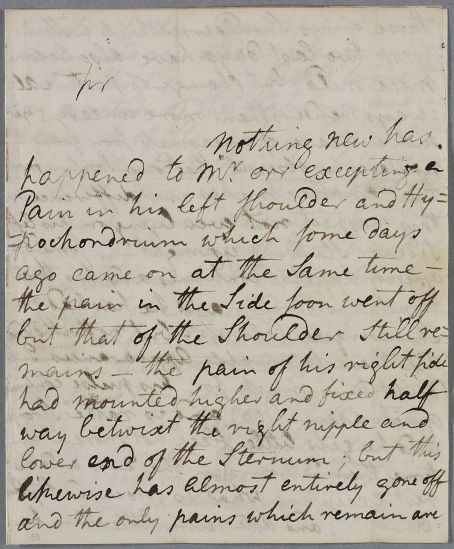 Sir
Nothing new has
happened to Mr orr excepting a
Pain in his left Shoulder and Hy=
=pochondrium which some days
ago came on at the Same time –
the pain in the Side soon went off
but that of the Shoulder Still re=
mains – the pain of his right side
had mounted higher and fixed half
way betwixt the right nipple and
lower end of the Sternum; but this
likewise has almost entirely gone off
and the only pains which remain are